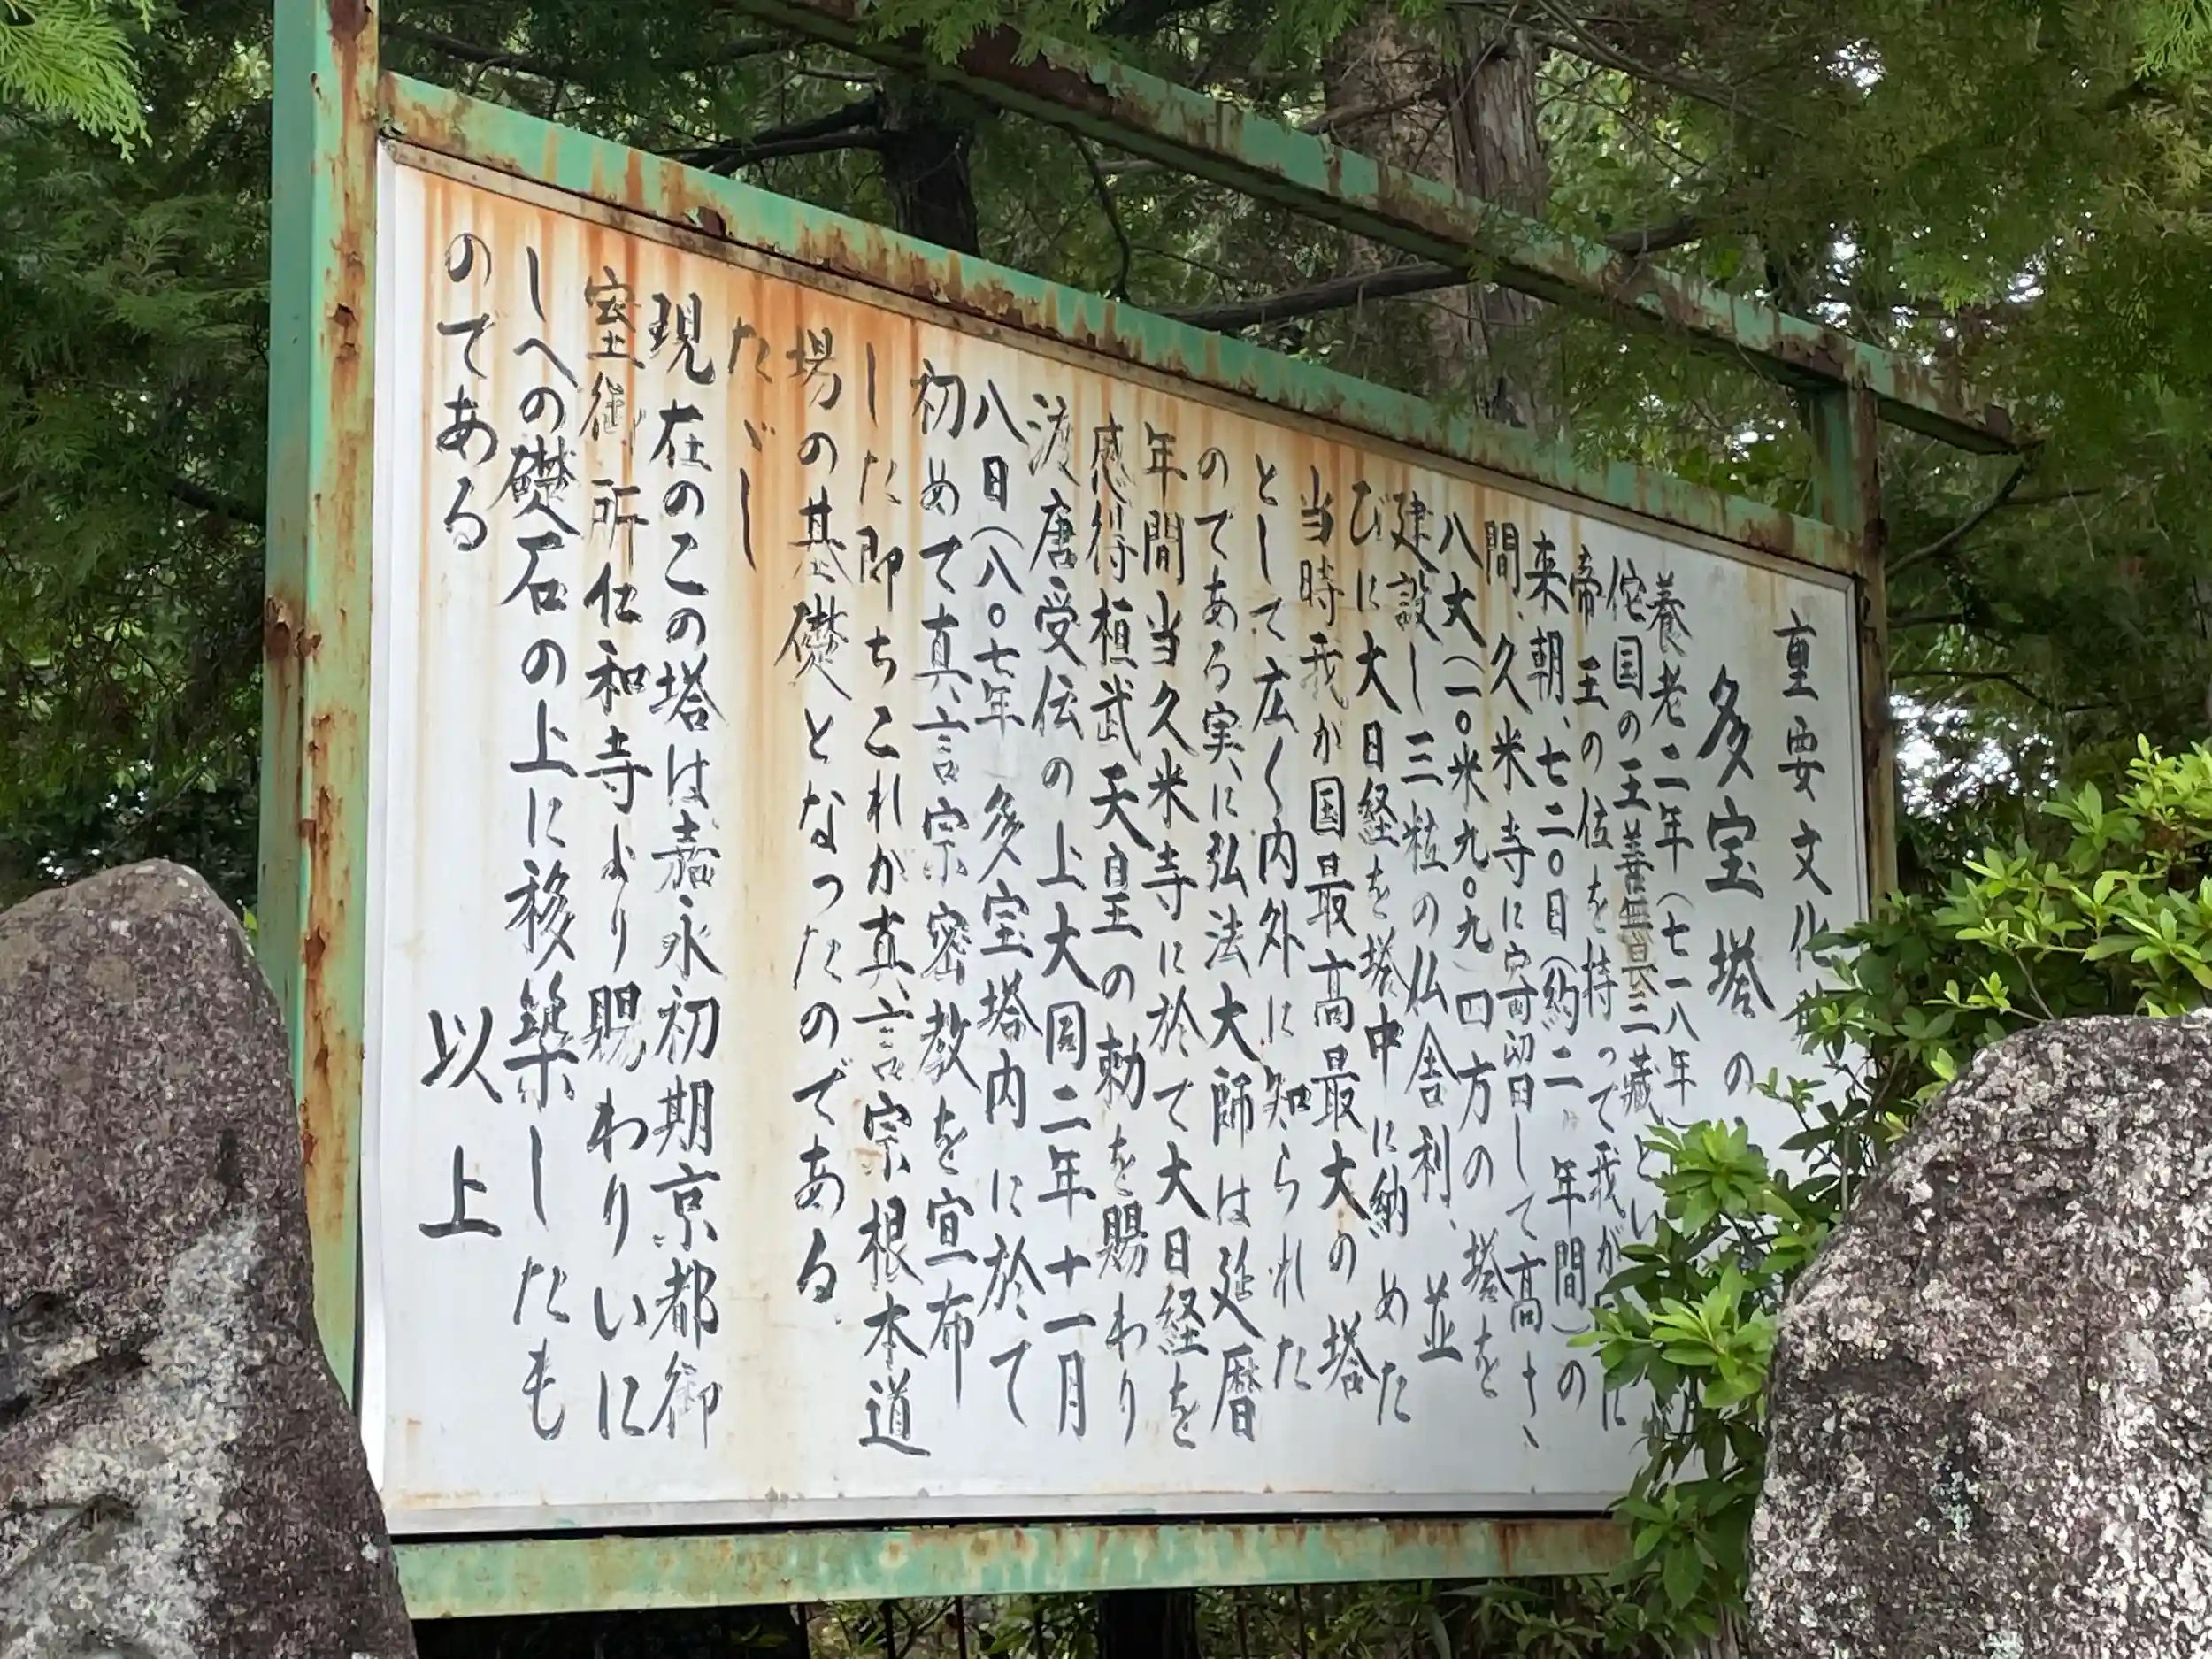 重要文化
多宝塔の
養老二年(七一八年)
佗国の王善無畏三藏とい
帝王の位を持って我が
来朝、七二〇日(約二ヶ年間)の
間、久米寺に寄留日して高さ、
八丈(一〇米九〇九)四方の塔を
建設し三粒の仏舎利、並
びに大日経を塔中に納めた
当時我が国最高最大の塔
として広く内外に知られた
のである実に弘法大師は延暦
年間当久米寺に於て大日経を
感得桓武天皇の勅を賜わり
渡唐受伝の上大同二年十一月
八日(八〇七年)多宝塔内に於て
初めて真言宗密教を宣布
した即ちこれが真言宗根本道
場の基礎となったのである
たゞし
現在のこの塔は嘉永初期京都御
室御所仁和寺より賜わりいに
しへの礎石の上に移築したも
のである
以上